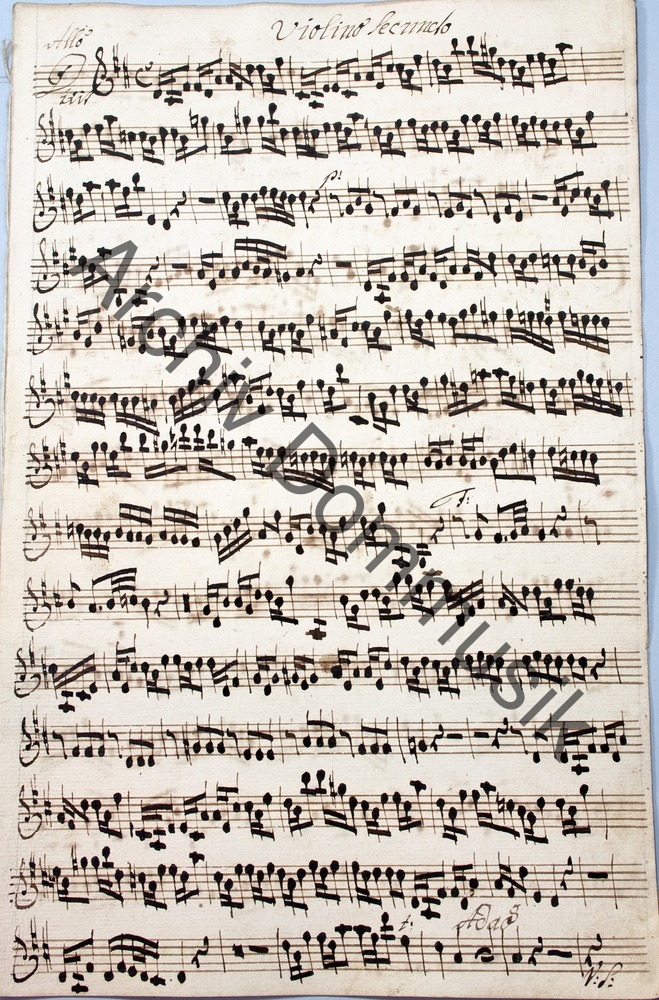 Violino Secundo
All:º
p:
t:
Adagº
V: S:
Archiv Dommusik